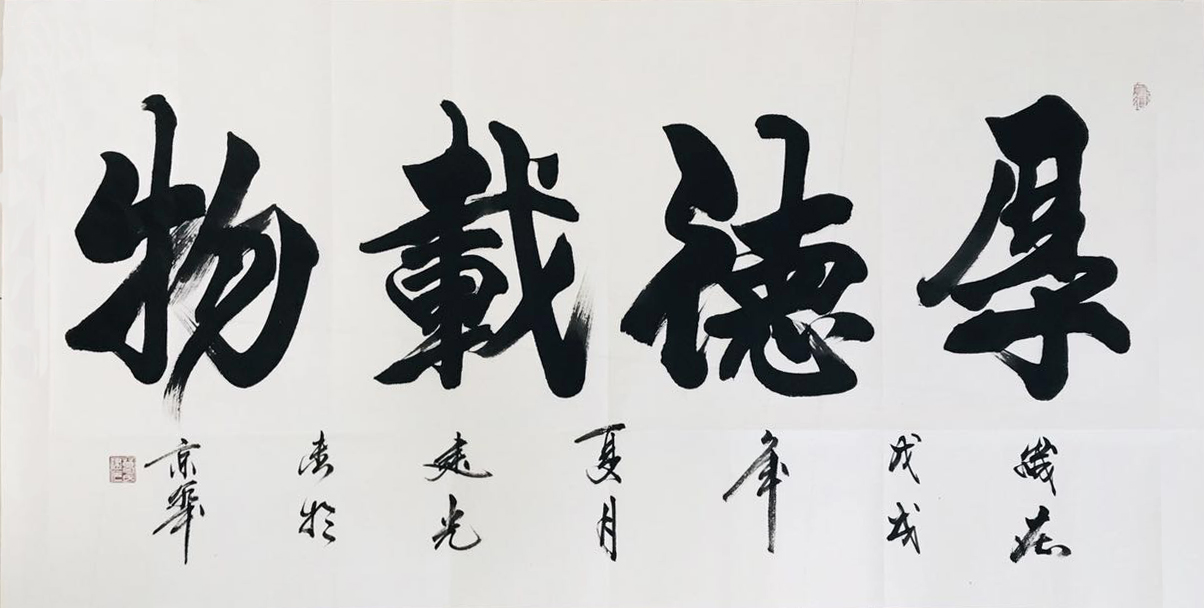 厚德載物
歲在
戊戌
年
夏月
建光
書於
京華